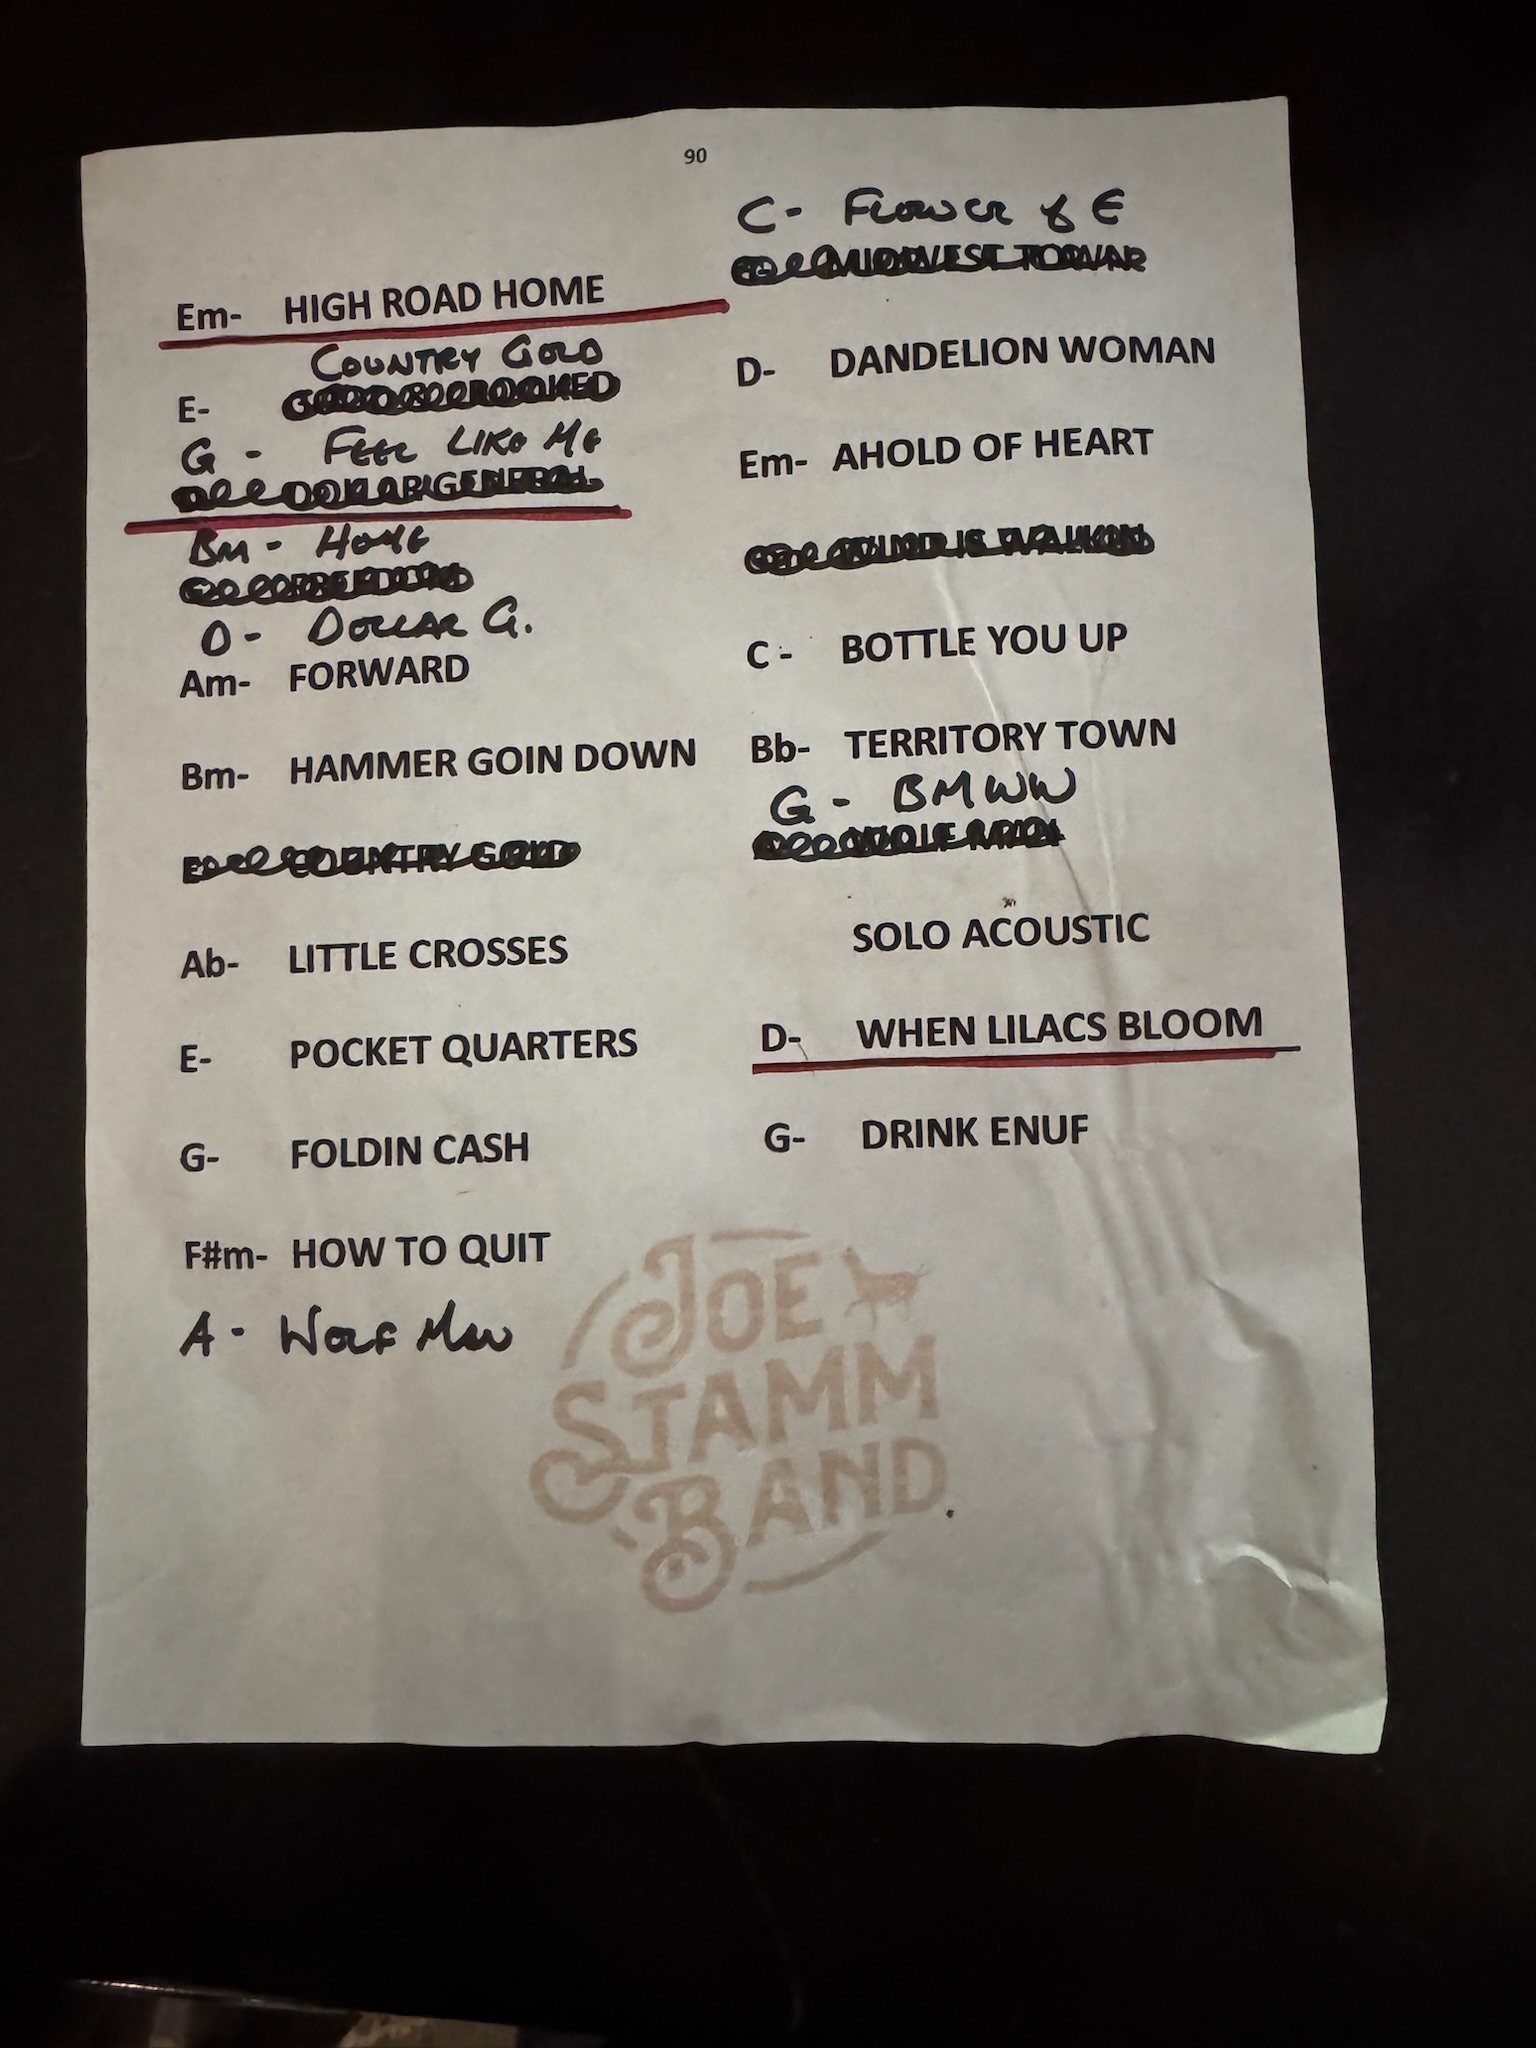 90
Em- HIGH ROAD HOME
COUNTRY GOLD
E-
G - FEEL LIKE ME
DOLLAR GENERAL
Bm - HOME
FREEDOM
D - DOLLAR G.
Am- FORWARD
Bm- HAMMER GOIN DOWN
E- COUNTRY GOLD
Ab- LITTLE CROSSES
E- POCKET QUARTERS
G- FOLDIN CASH
F#m- HOW TO QUIT
A - WOLF MAN
C - FLOWER of E
MIDWEST TOWN
D- DANDELION WOMAN
Em- AHOLD OF HEART
WIND IS WALKIN
C - BOTTLE YOU UP
Bb- TERRITORY TOWN
G - BMWW
WOLF MAN
SOLO ACOUSTIC
D- WHEN LILACS BLOOM
G- DRINK ENUF
JOE
STAMM
BAND